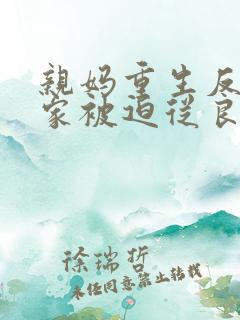 親妈重生反
家被迫从良
徐瑞哲
未经同意禁止转载